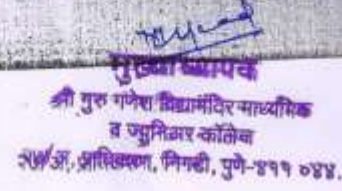 मुख्याध्यापक
श्री गुरु गणेश विद्यामंदिर माध्यमिक
व ज्युनिअर कॉलेज
निगडी, पुणे-४११ ०४४.